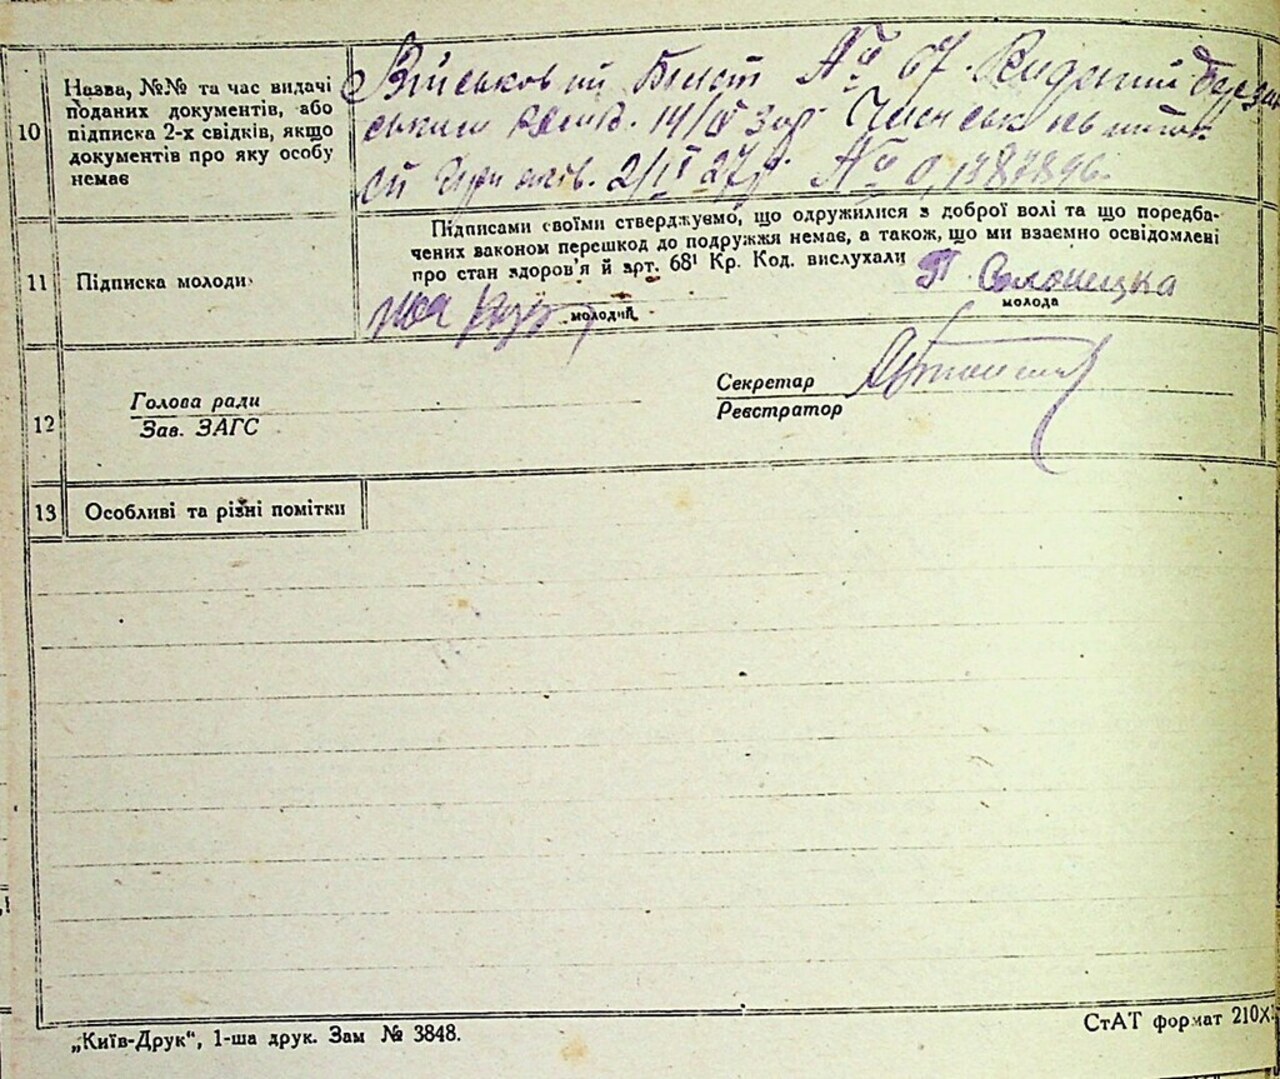 10
Назва, №№ та час видачі
поданих документів, або
підписка 2-х свідків, якщо
документів про яку особу
немає
Військовий Білет № 67. Виданий
14/IV 30р.
2/II 27р. №
11
Підписка молоди
Підписами своїми стверджуємо, що одружилися з доброї волі та що поредба-
чених законом перешкод до подружжя немає, а також, що ми взаємно освідомлені
про стан здоров'я й арт. 68¹ Кр. Код. вислухали
П Солонецка
молодий
молода
12
Голова ради
Зав. ЗАГС
Секретар
Реєстратор
13
Особливі та різні помітки
„Київ-Друк“, 1-ша друк. Зам № 3848.
СтАТ формат 210X